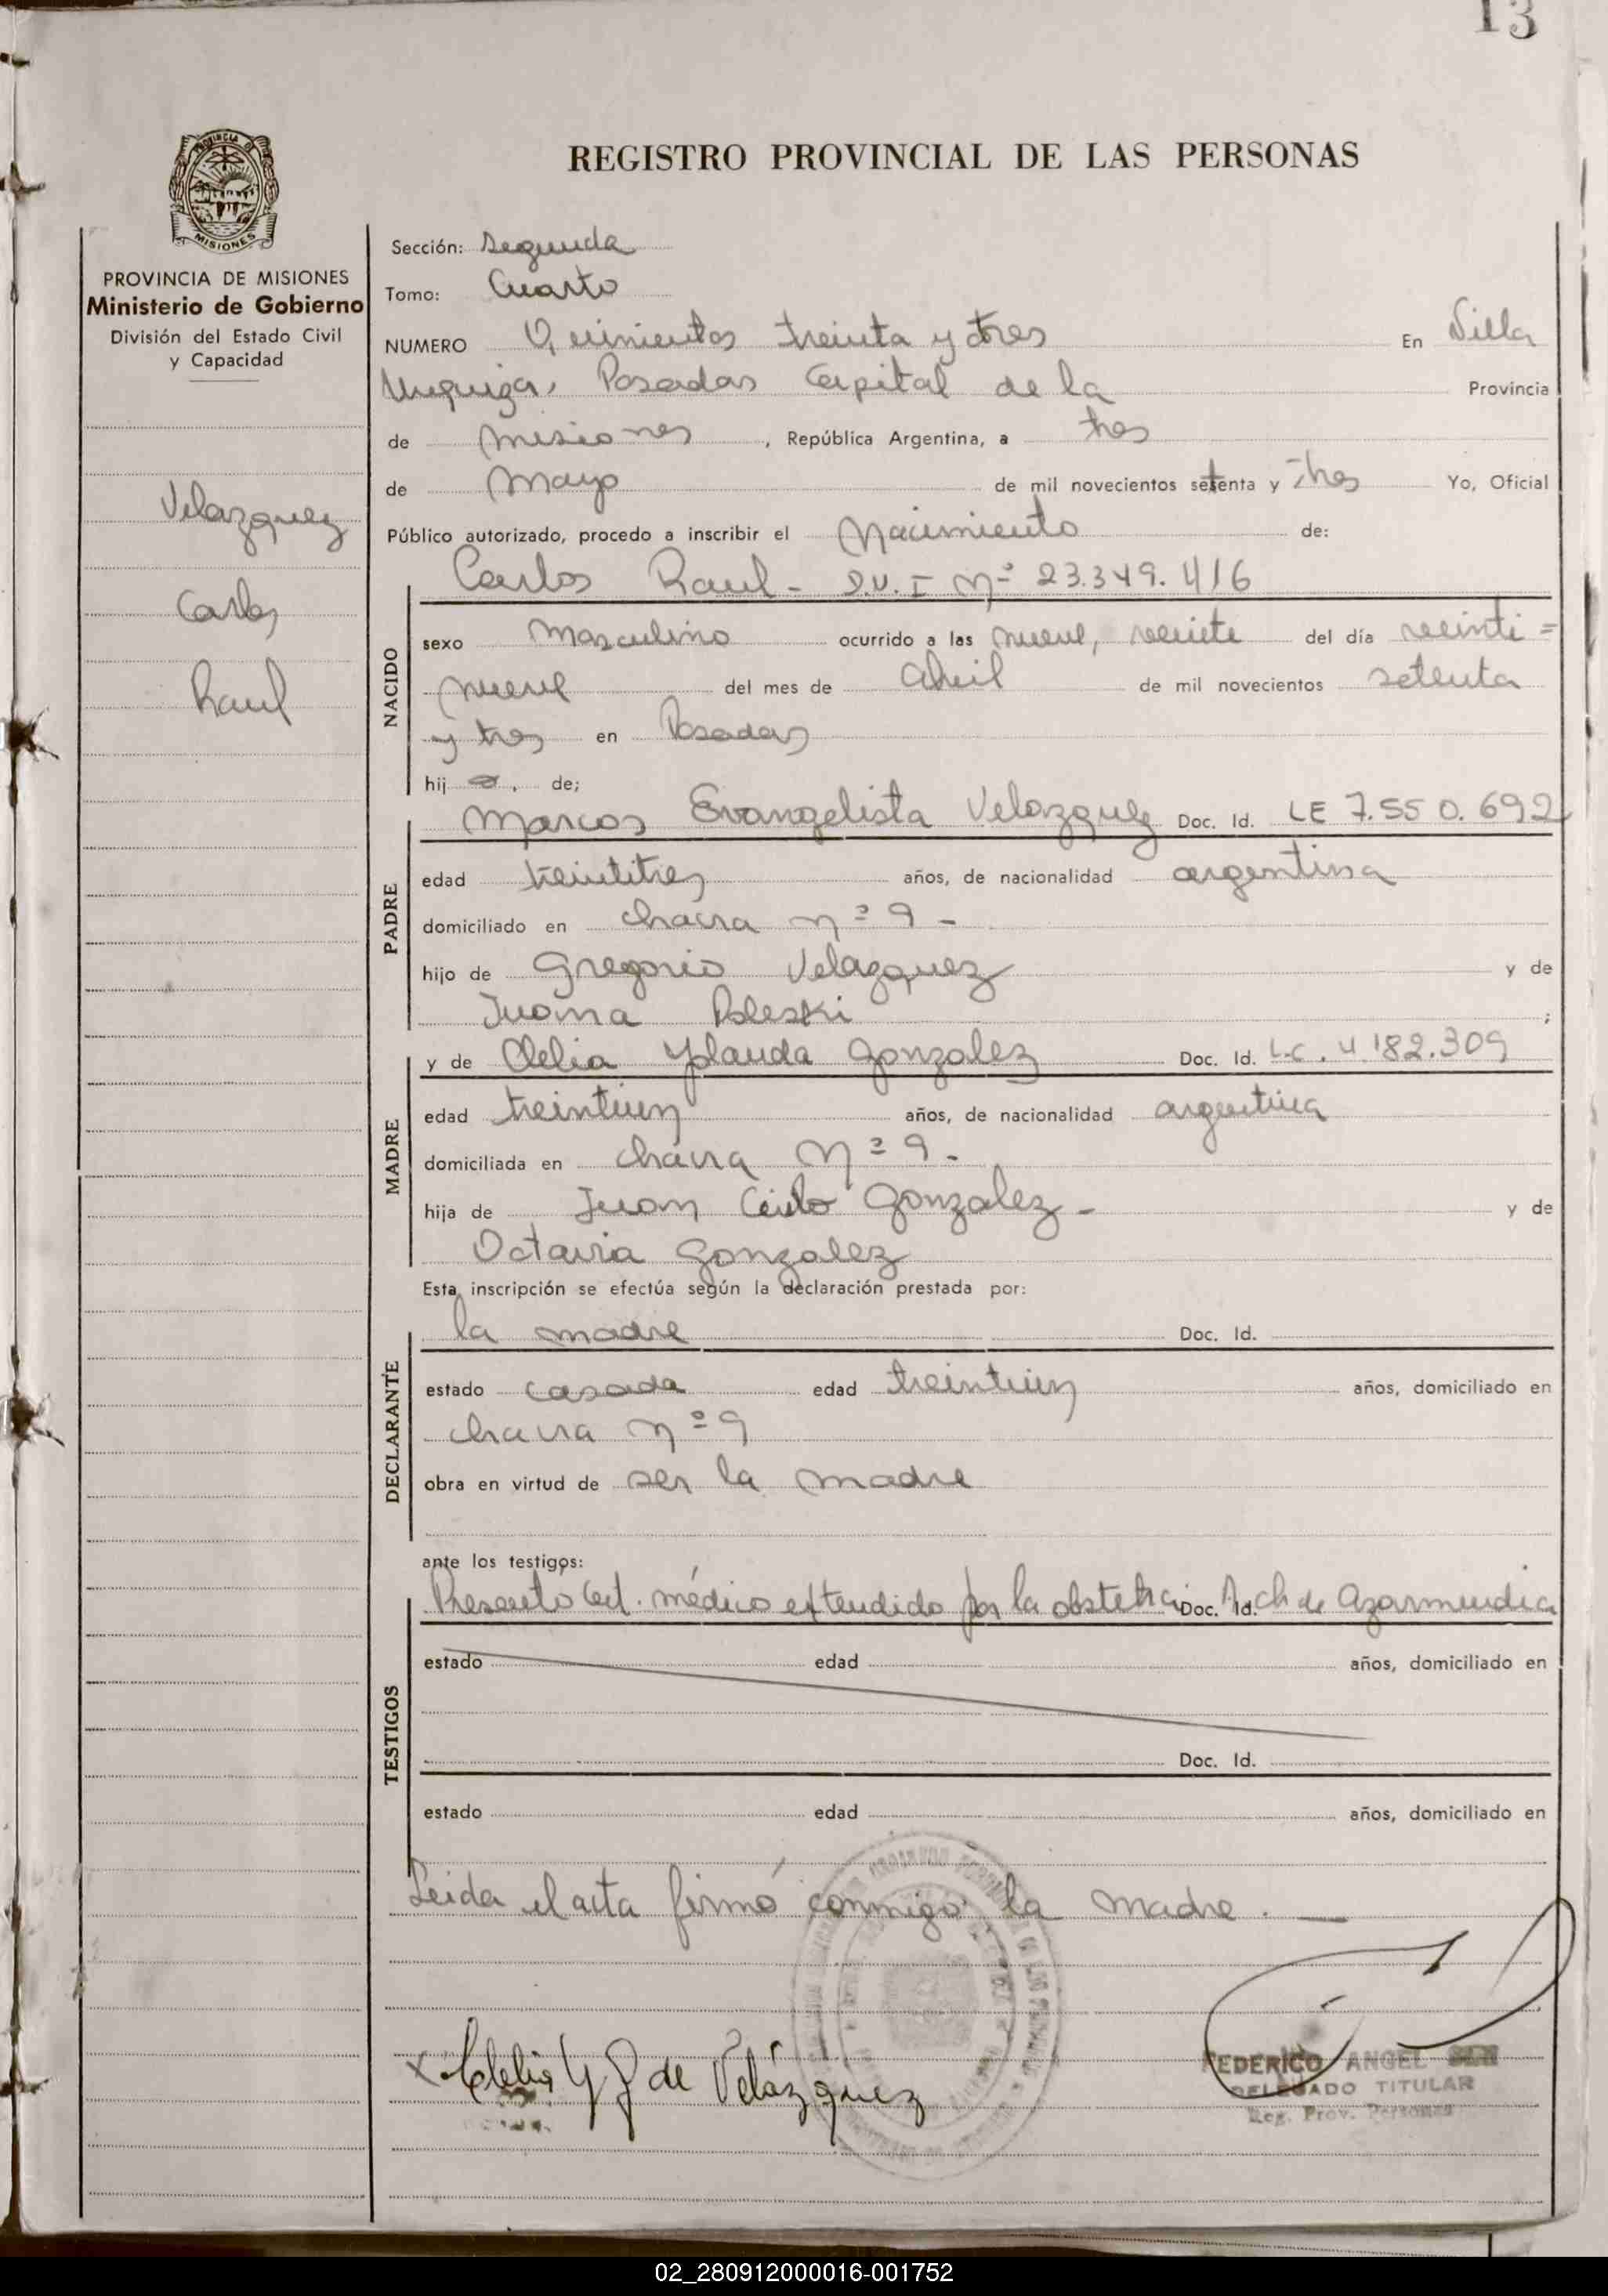 13
REGISTRO PROVINCIAL DE LAS PERSONAS
PROVINCIA DE MISIONES
Ministerio de Gobierno
División del Estado Civil
y Capacidad
Velazquez
Carlos
Raul
Sección: Segunda
Tomo: Cuarto
NUMERO Quinientos treinta y tres En Villa
Urquiza, Posadas Capital de la Provincia
de Misiones, República Argentina, a tres
de Mayo de mil novecientos setenta y tres Yo, Oficial
Público autorizado, procedo a inscribir el Nacimiento de:
Carlos Raul - D.N.I Nº 23.349.416
NACIDO
sexo Masculino ocurrido a las nueve, veinte del día veinti=
nueve del mes de Abril de mil novecientos setenta
y tres en Posadas
hij o, de;
PADRE
Marcos Evangelista Velazquez Doc. Id. LE 7.550.692
edad treintitres años, de nacionalidad argentina
domiciliado en chacra nº 9 -
hijo de Gregorio Velazquez y de
Juana Poleski ;
MADRE
y de Clelia Yolanda Gonzalez Doc. Id. L.C. 4.182.309
edad treintiun años, de nacionalidad argentina
domiciliada en chacra Nº 9 -
hija de Juan Gonzalez - y de
Octavia Gonzalez
Esta inscripción se efectúa según la declaración prestada por:
DECLARANTE
la madre Doc. Id.
estado casada edad treintiun años, domiciliado en
chacra nº 9
obra en virtud de ser la madre
ante los testigos:
TESTIGOS
Presento Cert. médico extendido por la obstetra Doc. Id. ch de Azarmendia
estado edad años, domiciliado en
Doc. Id.
estado edad años, domiciliado en
Leida el acta firmó conmigo la madre. —
x Clelia Y G de Velázquez
FEDERICO ANGEL
DELEGADO TITULAR
Reg. Prov. Personas
02_280912000016-001752